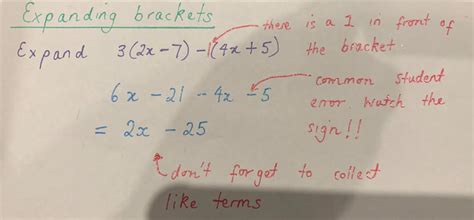 Expanding brackets
there is a 1 in front of
Expand 3(2x-7) -1(4x+5) the bracket
common student
6x - 21 - 4x - 5 error watch the
= 2x - 25 sign!!
don't forget to collect
like terms